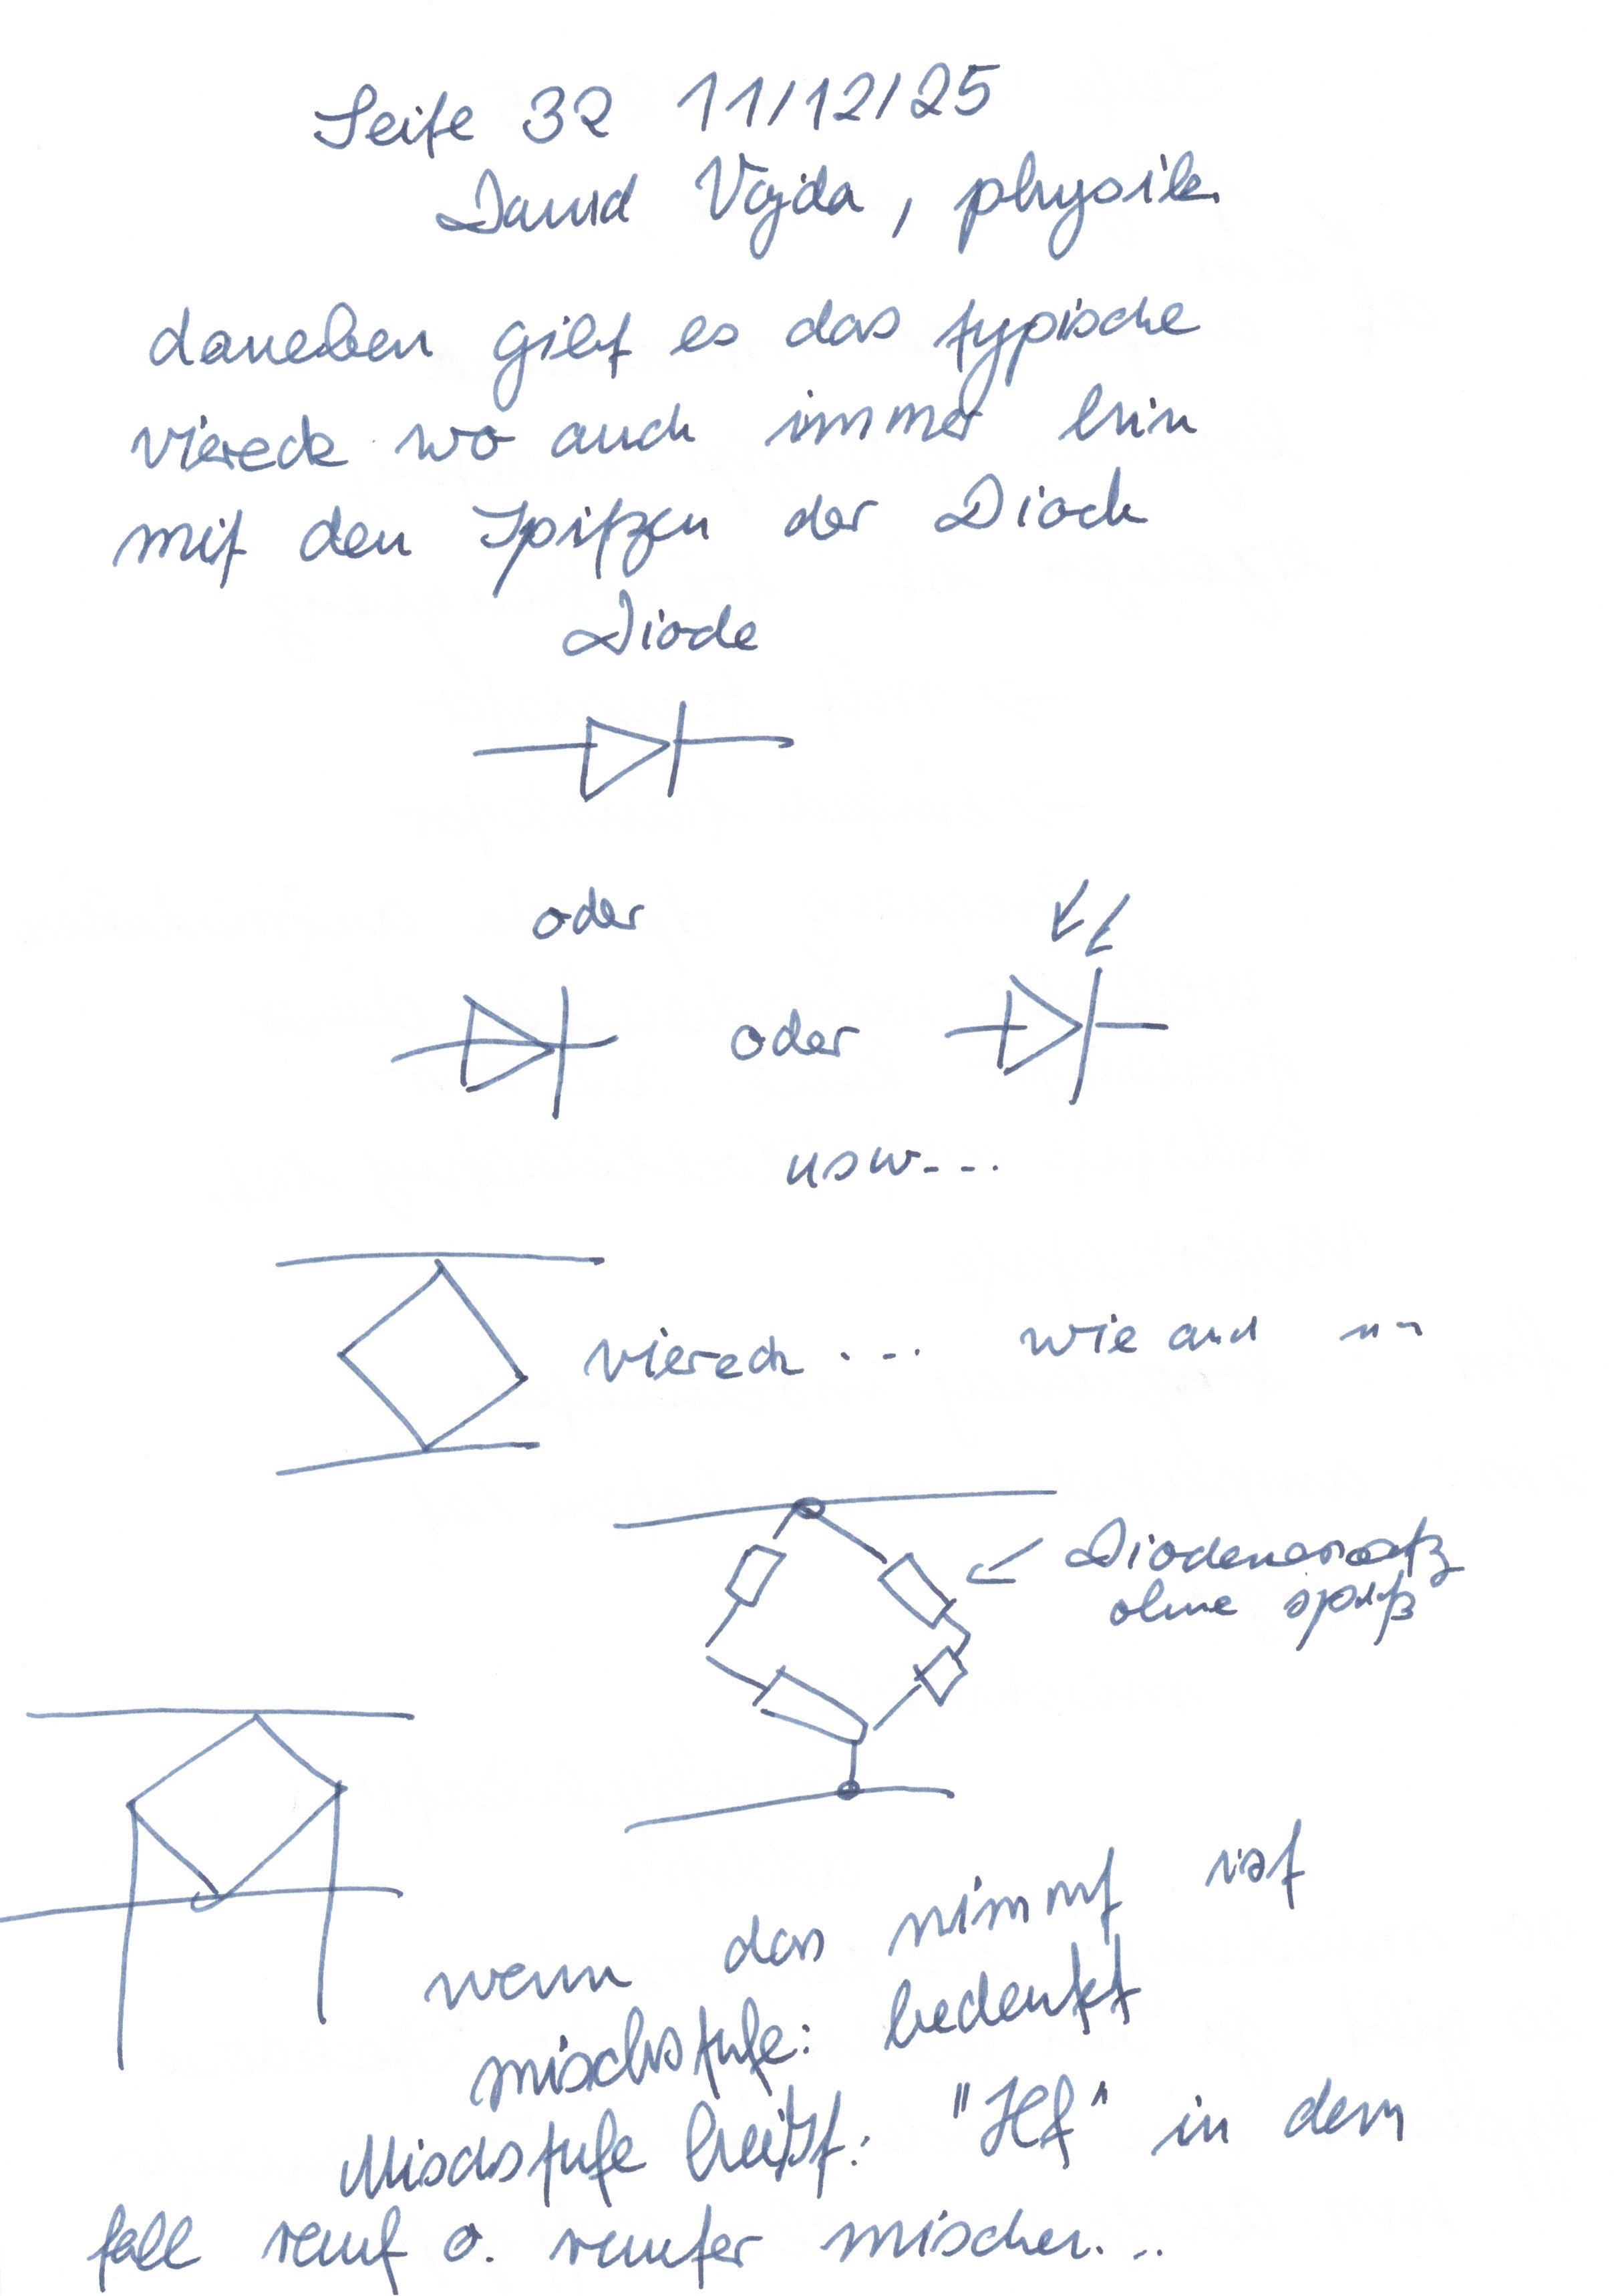 Seite 32 11/12/25
David Vajda, physik
daneben gibt es das typische
viereck wo auch immer hin
mit den Spitzen der Diode
Diode
oder
oder
usw...
viereck.... wie auch
Diodenersatz
ohne spaß
wenn das nimmt ist
mischstufe: bedenkt
Mischstufe heißt: "Hf" in dem
fall rauf o. runter mischen...